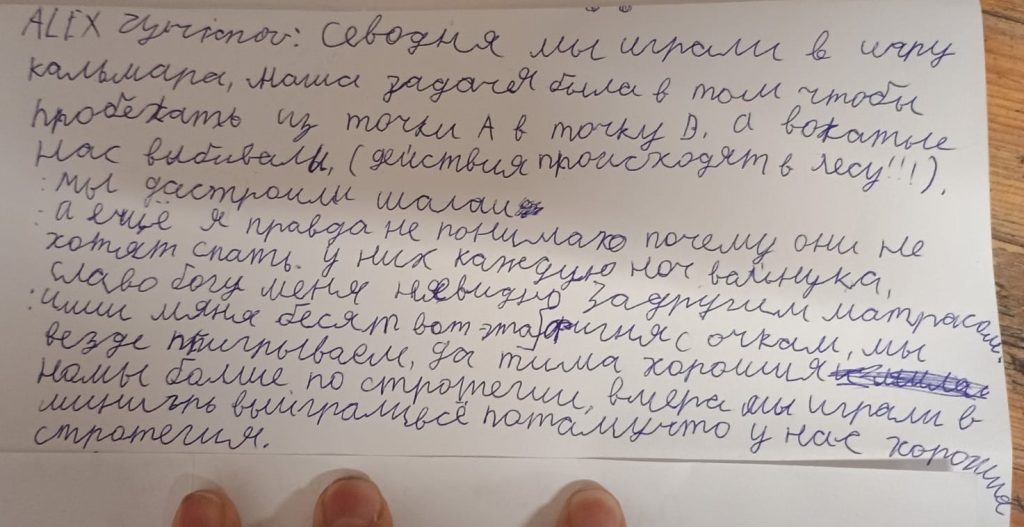 ALEX : Севодня мы играли в игру
кальмара, наша задачя была в том чтобы
пробежать из точки А в точку В. а вожатые
нас выбивали, (действия происходят в лесу!!!).
: мы дастроили шалаш
: а ещё я правда не понимаю почему они не
хотят спать. у них каждую ноч вайнука,
славо богу меня невидно задругим матрасом.
: иши мяня бесят вот эта фигня с очкам, мы
везде пиигрываем, да тима хороший
намы болше по стротегии, вчера мы играли в
минигрь выиграли всё потамучто у нас хорошия
стротегия.